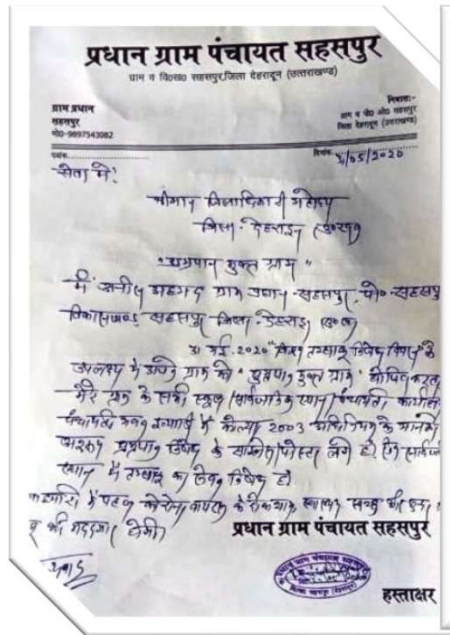 प्रधान ग्राम पंचायत सहसपुर
ग्राम व वि०ख० सहसपुर,जिला देहरादून (उत्तराखण्ड)
ग्राम प्रधान
सहसपुर
मो०-9897543082
निवास:-
ग्राम व पो० ओ० सहसपुर
जिला देहरादून (उत्तराखण्ड)
पत्रांक
दिनांक 31/05/2020
सेवा में!
श्रीमान जिलाधिकारी महोदय
जिला- देहरादून
"धूम्रपान मुक्त ग्राम"
मैं अनीस अहमद ग्राम प्रधान-सहसपुर, पो०-सहसपु
विकासखण्ड सहसपुर जिला-देहरादून
31 मई-2020 "विश्व तम्बाकू निषेध दिवस" के
उपलक्ष्य में अपने ग्राम को "धूम्रपान मुक्त ग्राम" घोषित करता
मेरे ग्राम के सभी स्कूल/सार्वजनिक स्थान/पंचायती कार्यालय
पंचायती भवन इत्यादि में कोटपा 2003 अधिनियम के मानकों
धूम्रपान निषेध के साईनेज/पोस्टर लगे है।
स्थान में तम्बाकू का सेवन निषेध है।
में पहल कोरोना वायरस के रोकथाम
भी मददगार होगी।
प्रधान ग्राम पंचायत सहसपुर
हस्ताक्षर